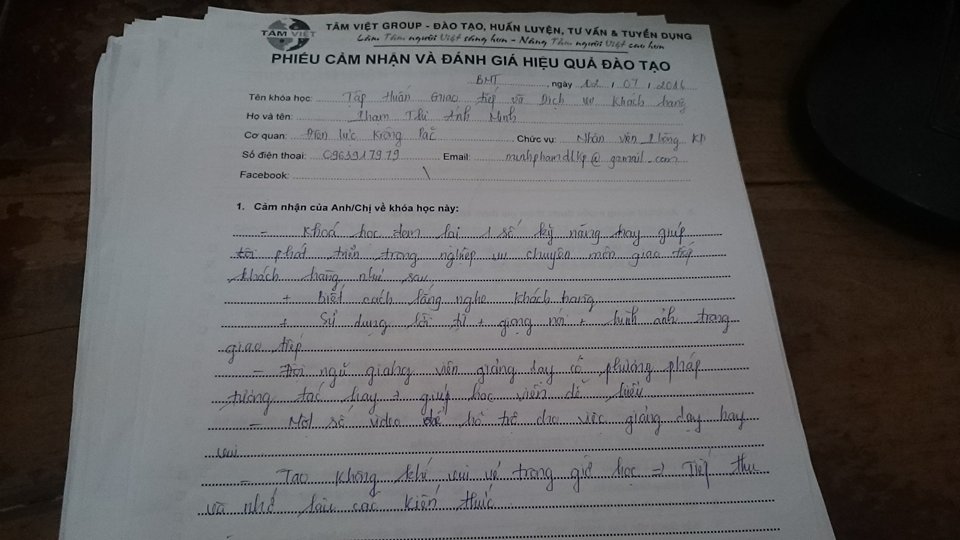 TÂM VIỆT
TÂM VIỆT GROUP - ĐÀO TẠO, HUẤN LUYỆN, TƯ VẤN & TUYỂN DỤNG
Làm Tâm người Việt sáng hơn - Nâng Tầm người Việt cao hơn
PHIẾU CẢM NHẬN VÀ ĐÁNH GIÁ HIỆU QUẢ ĐÀO TẠO
BMT, ngày 12, 07, 2016
Tên khóa học: Tập Huấn Giao tiếp và Dịch vụ Khách hàng
Họ và tên: Phạm Thị Ánh Minh
Cơ quan: Điện lực Krông Pắc Chức vụ: Nhân viên Phòng KD
Số điện thoại: 0963917979 Email: minhphamdlkp@gamail.com
Facebook: \
1. Cảm nhận của Anh/Chị về khóa học này:
- Khoá học đem lại 1 số kỹ năng hay giúp
tôi phát triển trong nghiệp vụ chuyên môn giao tiếp
khách hàng như sau
+ Biết cách lắng nghe khách hàng
+ Sử dụng lời từ + giọng nói + hình ảnh trong
giao tiếp
- Đội ngũ giảng viên giảng dạy có phương pháp
tương tác hay + giúp học viên dễ hiểu
- Một số video để hỗ trợ cho việc giảng dạy hay
vui
- Tạo không khí vui vẻ trong giờ học => Tiếp thu
và nhớ lâu các kiến thức